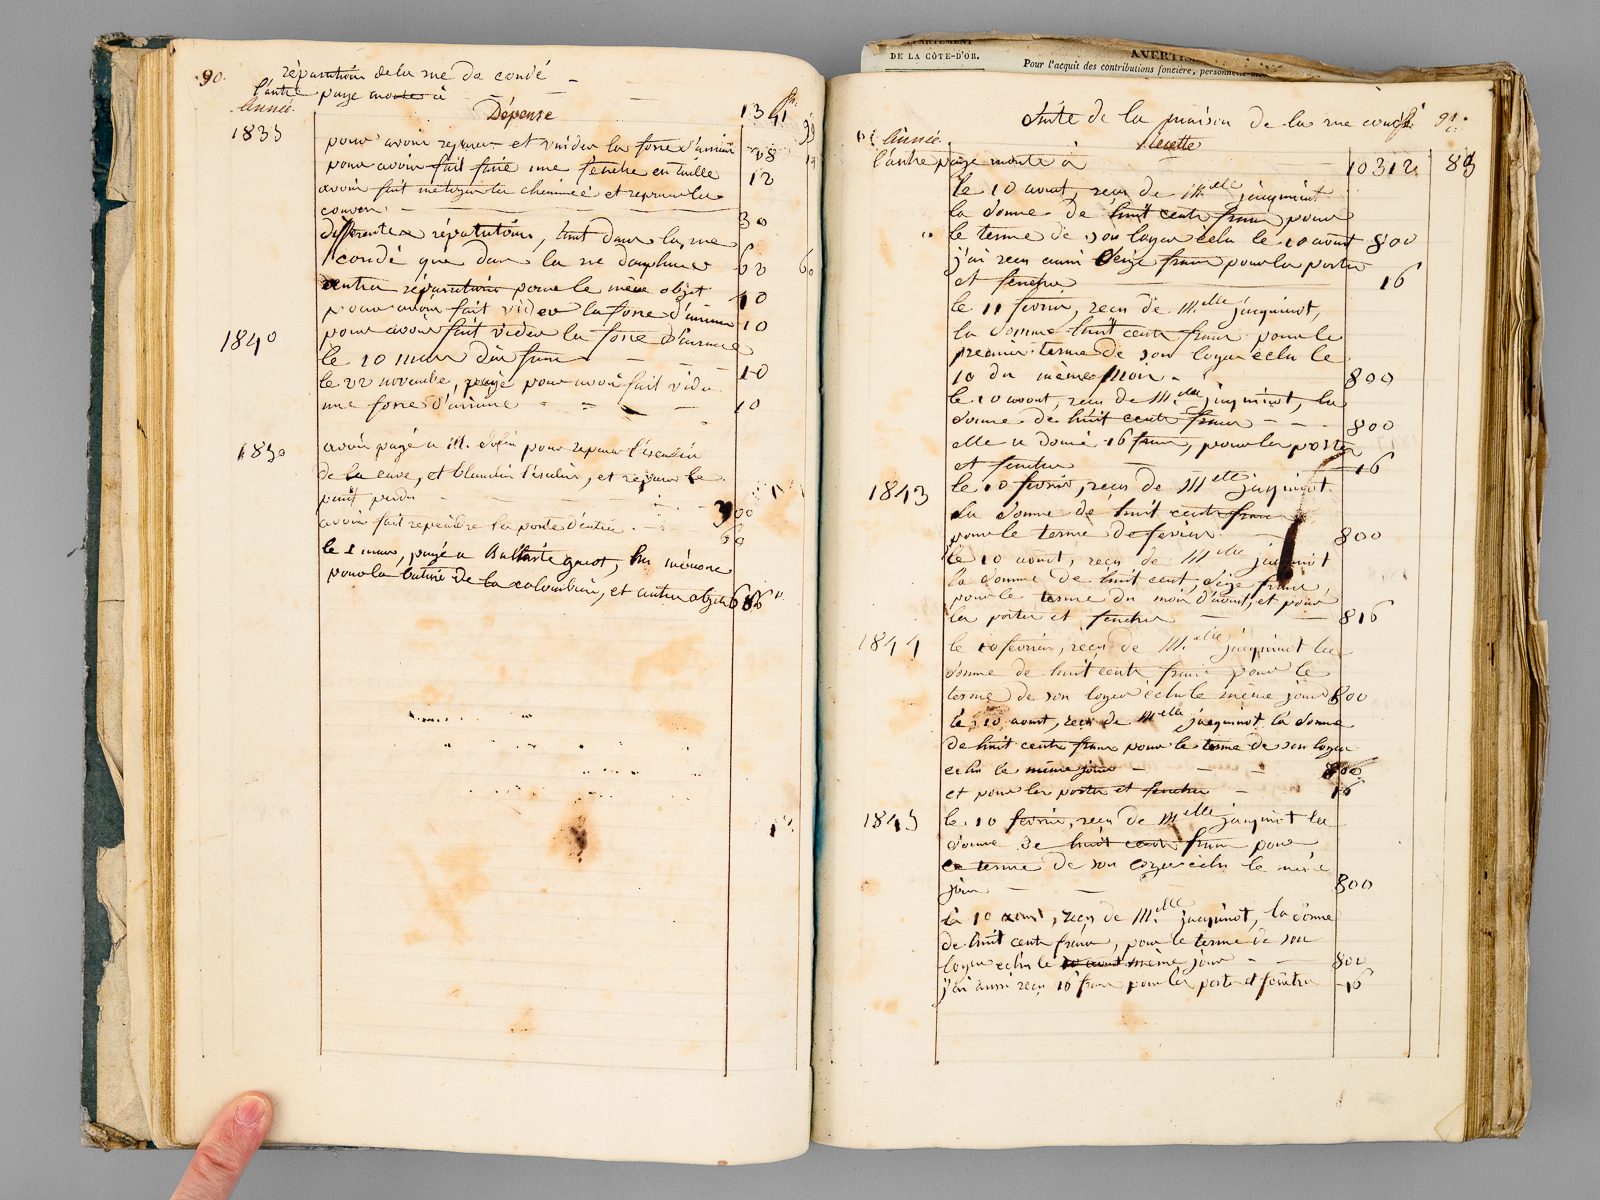 90.
réparation de la rue de condé
l'autre page monte à
Année
Dépense
1341 99
1835
pour avoir reparer et vuider la fosse d'aisance 28
pour avoir fait faire une fenetre en taille 12
avoir fait netoyer la cheminée et reparer les
couvert 30
differentes réparations, tant dans la rue
condé que dans la rue dauphine 62 60
autres réparations pour le même objet 10
pour avoir fait vider la fosse d'aisance 10
1840
pour avoir fait vider la fosse d'aisance
le 10 mars dix francs 10
le 22 novembre, payé pour avoir fait vider
une fosse d'aisance 10
1830
avoir payé a M. pour reparer l'escalier
de la cave, et blanchir l'escalier, et reparer le
puits perdu 300
avoir fait repeindre la porte d'entrée 60
le 2 mars, payé a guiot, un mémoire
pour la batisse de la colombière, et autres objets 686
DÉPARTEMENT
DE LA CÔTE-D'OR.
AVERTIS
Pour l'acquit des contributions foncière, personnelle-mo
Suite de la maison de la rue condé 91.
Année
Recette
l'autre page monte à 10312 85
le 10 aout, reçu de Melle jacquinot
la somme de huit cents francs pour
le terme de son loyer échu le 10 aout 800
j'ai reçu aussi seize francs pour les portes
et fenetres 16
le 11 fevrier, reçu de Melle jacquinot,
la somme huit cents francs pour le
premier terme de son loyer échu le
10 du même mois 800
le 10 aout, reçu de Melle jacquinot, la
somme de huit cents francs 800
elle a donné 16 francs, pour les portes
et fenetres 16
1843
le 10 fevrier, reçu de Melle jacquinot
la somme de huit cents francs
pour le terme de fevrier 800
le 10 aout, reçu de Melle jacquinot
la somme de huit cent seize francs,
pour le terme du mois d'aout, et pour
les portes et fenetres 816
1844
le 10 fevrier, reçu de Melle jacquinot la
somme de huit cents francs pour le
terme de son loyer échu le même jour 800
le 10 aout, reçu de Melle jacquinot la somme
de huit cents francs pour le terme de son loyer
echu le même jour 800
et pour les portes et fenetres 16
1845
le 10 fevrier, reçu de Melle jacquinot la
somme de huit cents francs pour
le terme de son loyer échu le même
jour 800
le 10 aout, reçu de Melle jacquinot, la somme
de huit cents francs, pour le terme de son
loyer echu le 10 aout même jour 800
j'ai aussi reçu 16 francs pour les portes et fenetres 16